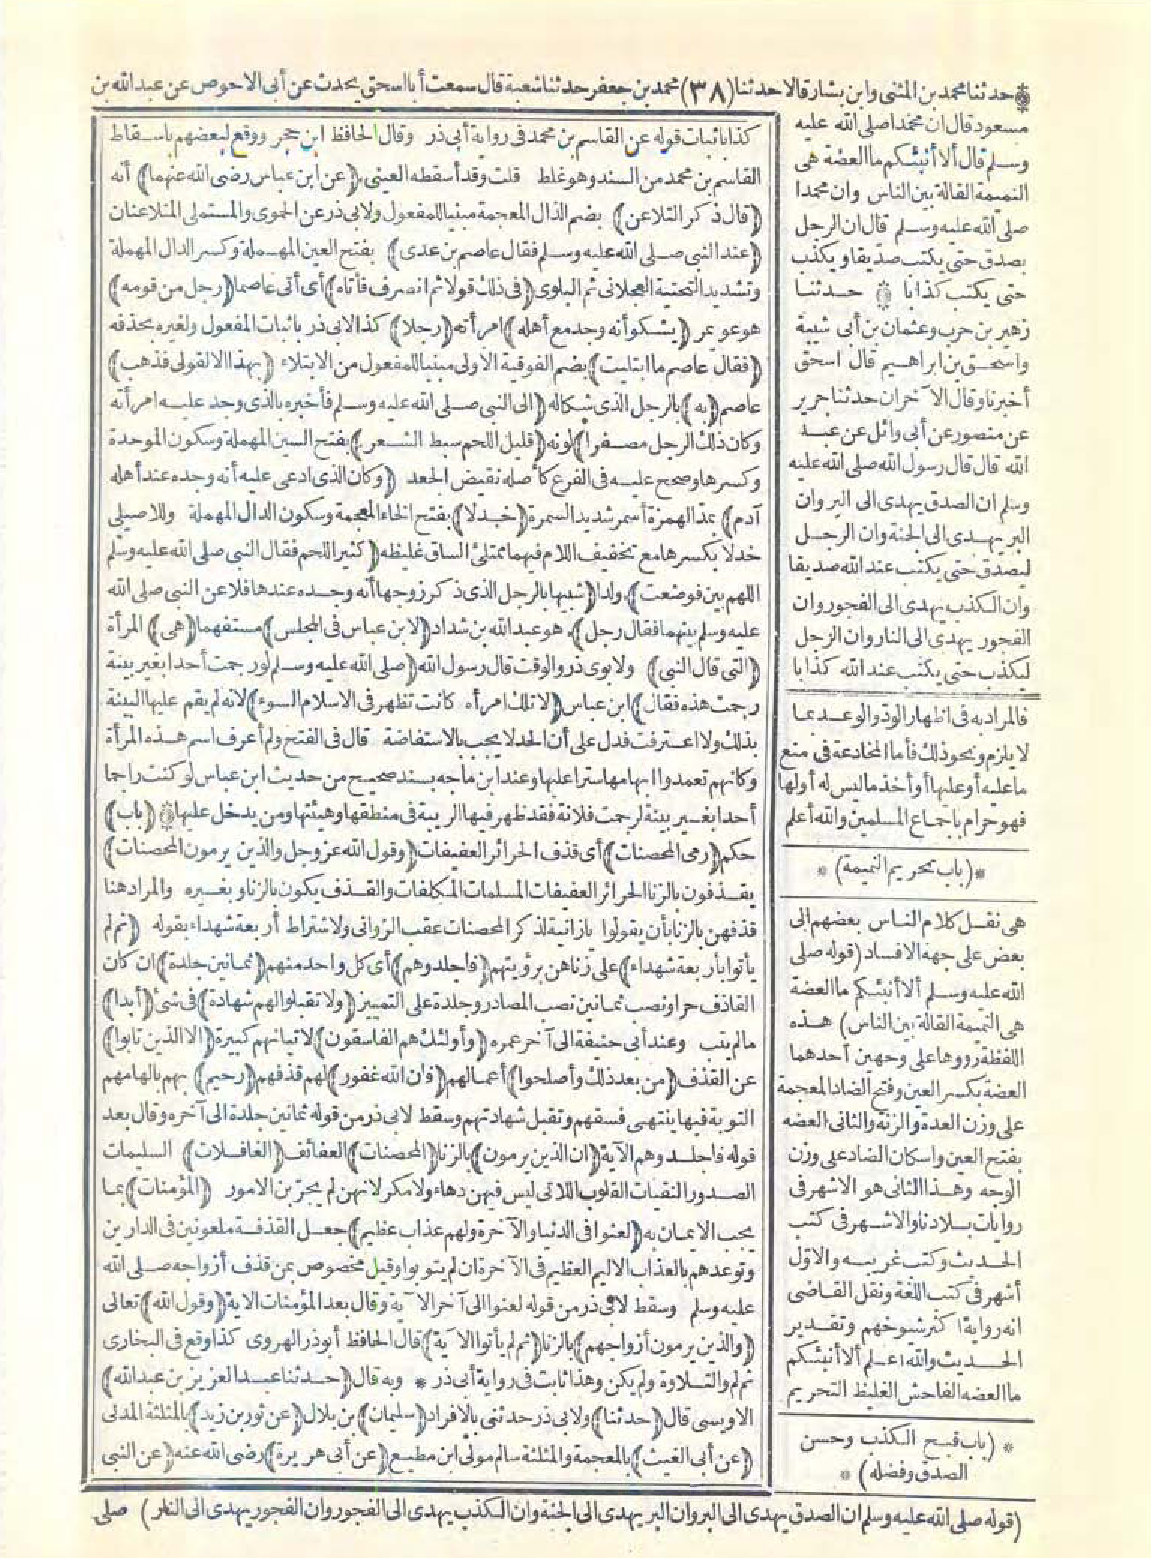 * حدثنا محمد بن المثنى وابن بشار قالا حدثنا (٣٨) محمد بن جعفر حدثنا شعبة قال سمعت أبا اسحق يحدث عن أبى الاحوص عن عبد الله بن
مسعود قال ان محمدا صلى الله عليه
وسلم قال ألا أنبئكم ما العضة هى
النميمة القالة بين الناس وان محمدا
صلى الله عليه وسلم قال ان الرجل
يصدق حتى يكتب صديقا ويكذب
حتى يكتب كذابا * حدثنا
زهير بن حرب وعثمان بن أبى شيبة
واسحق بن ابراهيم قال اسحق
أخبرنا وقال الآخران حدثنا جرير
عن منصور عن أبى وائل عن عبد
الله قال قال رسول الله صلى الله عليه
وسلم ان الصدق يهدى الى البر وان
البر يهدى الى الجنة وان الرجل
ليصدق حتى يكتب عند الله صديقا
وان الكذب يهدى الى الفجور وان
الفجور يهدى الى النار وان الرجل
ليكذب حتى يكتب عند الله كذابا
فالمراد به فى اظهار الود والوعد بما
لا يلزم ونحو ذلك فأما المخادعة فى منع
ما عليه أو عليها أو أخذ ما ليس له أو لها
فهو حرام باجماع المسلمين والله أعلم
* (باب تحريم النميمة) *
هى نقل كلام الناس بعضهم الى
بعض على جهة الافساد (قوله صلى
الله عليه وسلم ألا أنبئكم ما العضة
هى النميمة القالة بين الناس) هذه
اللفظة رووها على وجهين أحدهما
العضة بكسر العين وفتح الضاد المعجمة
على وزن العدة والزنة والثانى العضه
بفتح العين واسكان الضاد على وزن
الوجه وهذا الثانى هو الاشهر فى
روايات بلادنا والاشهر فى كتب
الحديث وكتب غريبه والاوّل
أشهر فى كتب اللغة ونقل القاضى
انه رواية أكثر شيوخهم وتقدير
الحديث والله اعلم ألا أنبئكم
ما العضه الفاحش الغليظ التحريم
* (باب قبح الكذب وحسن
الصدق وفضله) *
كذا باثبات قوله عن القاسم بن محمد فى رواية أبى ذر وقال الحافظ ابن حجر ووقع لبعضهم باسقاط
القاسم بن محمد من السند وهو غلط قلت وقد أسقطه العينى (عن ابن عباس رضى الله عنهما) أنه
(قال ذكر التلاعن) بضم الذال المعجمة مبنيا للمفعول ولابى ذر عن الحموى والمستملى المتلاعنان
(عند النبى صلى الله عليه وسلم فقال عاصم بن عدى) بفتح العين المهملة وكسر الدال المهملة
وتشديد التحتية العجلانى ثم البلوى (فى ذلك قولا ثم انصرف فأتاه) أى أتى عاصما (رجل من قومه)
هو عويمر (يشكو أنه وجد مع أهله) امرأته (رجلا) كذا لابى ذر باثبات المفعول ولغيره بحذفه
(فقال عاصم ما ابتليت) بضم الفوقية الاولى مبنيا للمفعول من الابتلاء (بهذا الا لقولى فذهب)
عاصم (به) بالرجل الذى شكاله (الى النبى صلى الله عليه وسلم فأخبره بالذى وجد عليه امرأته
وكان ذلك الرجل مصفرا) لونه (قليل اللحم سبط الشعر) بفتح السين المهملة وسكون الموحدة
وكسرها وصحح عليه فى الفرع كأصله نقيض الجعد (وكان الذى ادعى عليه أنه وجده عند أهله
آدم) بمد الهمزة أسمر شديد السمرة (خدلا) بفتح الخاء المعجمة وسكون الدال المهملة وللاصيلى
خدلا بكسرها مع تخفيف اللام فيهما ممتلئ الساق غليظه (كثير اللحم فقال النبى صلى الله عليه وسلم
اللهم بين فوضعت) ولدا (شبيها بالرجل الذى ذكر زوجها أنه وجده عندها فلاعن النبى صلى الله
عليه وسلم بينهما فقال رجل) هو عبد الله بن شداد (لابن عباس فى المجلس) مستفهما (هى) المرأة
(التى قال النبى) ولابوى ذر والوقت قال رسول الله (صلى الله عليه وسلم لو رجمت أحدا بغير بينة
رجمت هذه فقال) ابن عباس (لا تلك امرأه كانت تظهر فى الاسلام السوء) لانه لم يقم عليها البينة
بذلك ولا اعترفت فدل على أن الحد لا يجب بالاستفاضة قال فى الفتح ولم أعرف اسم هذه المرأة
وكانهم تعمدوا ابهامها سترا عليها وعند ابن ماجه بسند صحيح من حديث ابن عباس لو كنت راجما
أحدا بغير بينة لرجمت فلانة فقد ظهر فيها الريبة فى منطقها وهيئتها ومن يدخل عليها * (باب)
حكم (رمى المحصنات) أى قذف الحرائر العفيفات (وقول الله عز وجل والذين يرمون المحصنات)
يقذفون بالزنا الحرائر العفيفات المسلمات المكلفات والقذف يكون بالزنا وبغيره والمراد هنا
قذفهن بالزنا بأن يقولوا يا زانية لذكر المحصنات عقب الزوانى ولاشتراط أربعة شهداء بقوله (ثم لم
يأتوا بأربعة شهداء) على زناهن برؤيتهم (فاجلدوهم) أى كل واحد منهم (ثمانين جلدة) ان كان
القاذف حرا ونصب ثمانين نصب المصادر وجلدة على التمييز (ولا تقبلوا لهم شهادة) فى شئ (أبدا)
ما لم يتب وعند أبى حنيفة الى آخر عمره (وأولئك هم الفاسقون) لاتيانهم كبيرة (الا الذين تابوا)
عن القذف (من بعد ذلك وأصلحوا) أعمالهم (فان الله غفور) لهم قذفهم (رحيم) بهم بالهامهم
التوبة فيها ينتهى فسقهم وتقبل شهادتهم وسقط لابى ذر من قوله ثمانين جلدة الى آخره وقال بعد
قوله فاجلدوهم الآية (ان الذين يرمون) بالزنا (المحصنات) العفائف (الغافلات) السليمات
الصدور النقيات القلوب اللاتى ليس فيهن دهاء ولا مكر لانهن لم يجرّ بن الامور (المؤمنات) بما
يجب الايمان به (لعنوا فى الدنيا والآخرة ولهم عذاب عظيم) جعل القذفة ملعونين فى الدارين
وتوعدهم بالعذاب الاليم العظيم فى الآخرة ان لم يتوبوا وقيل مخصوص بمن قذف أزواجه صلى الله
عليه وسلم وسقط لابى ذر من قوله لعنوا الى آخر الآية وقال بعد المؤمنات الاية (وقول الله) تعالى
(والذين يرمون أزواجهم) بالزنا (ثم لم يأتوا الآية) قال الحافظ أبو ذر الهروى كذا وقع فى البخارى
ثم لم والتلاوة ولم يكن وهذا ثابت فى رواية أبى ذر * وبه قال (حدثنا عبد العزيز بن عبد الله)
الاويسى قال (حدثنا) ولابى ذر حدثنى بالافراد (سليمان) بن بلال (عن ثور بن زيد) بالمثلثة المدنى
(عن أبى الغيث) بالمعجمة والمثلثة سالم مولى ابن مطيع (عن أبى هريرة) رضى الله عنه (عن النبى
(قوله صلى الله عليه وسلم ان الصدق يهدى الى البر وان البر يهدى الى الجنة وان الكذب يهدى الى الفجور وان الفجور يهدى الى النار) صلى